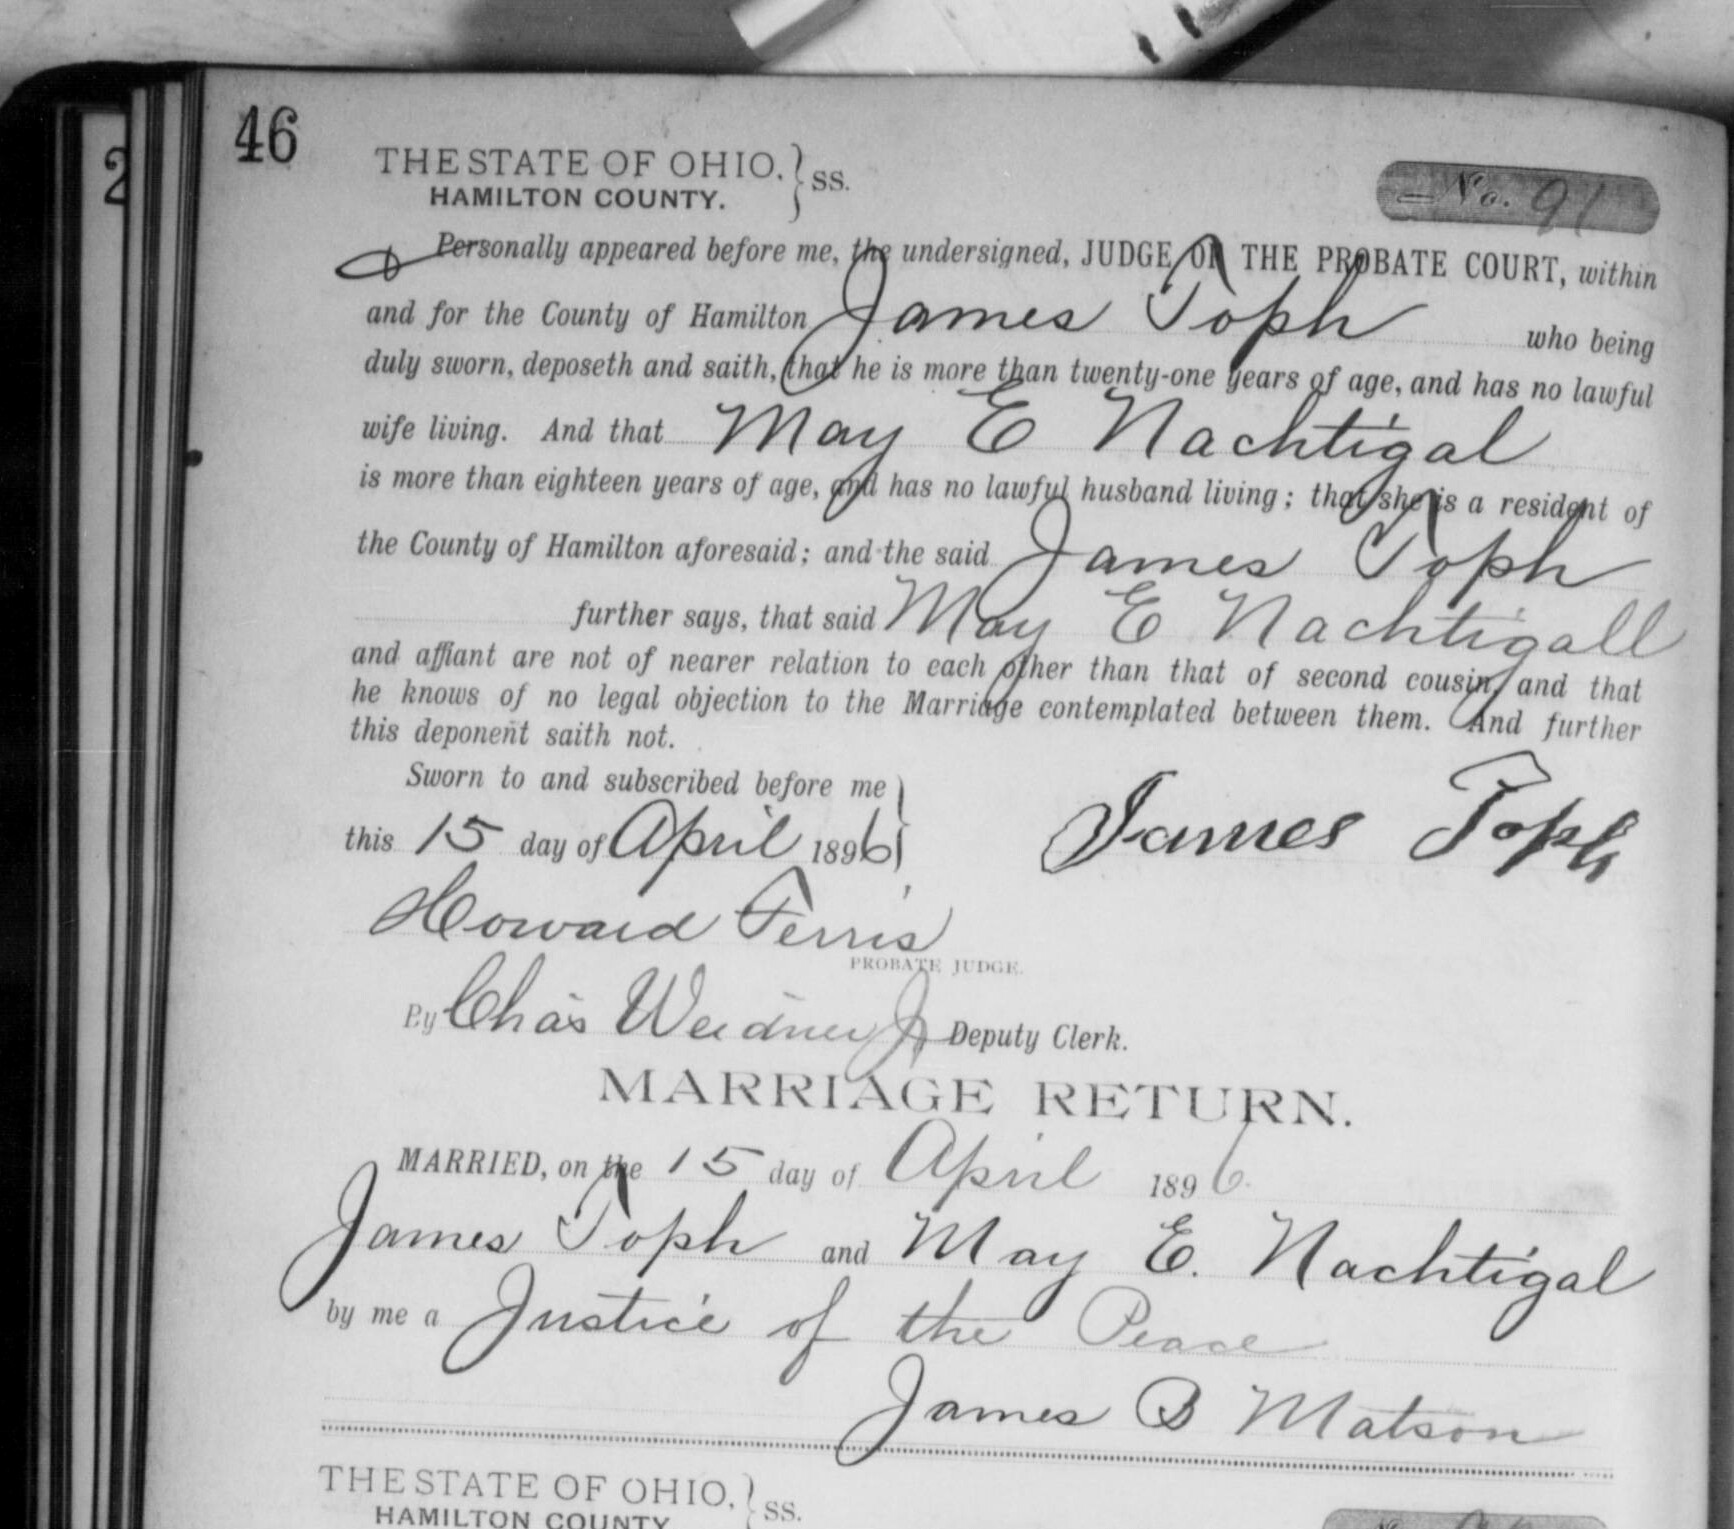 46
2
THE STATE OF OHIO, } SS.
HAMILTON COUNTY.
No. 91
Personally appeared before me, the undersigned, JUDGE OF THE PROBATE COURT, within
and for the County of Hamilton James Toph who being
duly sworn, deposeth and saith, that he is more than twenty-one years of age, and has no lawful
wife living. And that May E Nachtigal
is more than eighteen years of age, and has no lawful husband living; that she is a resident of
the County of Hamilton aforesaid; and the said James Toph
further says, that said May E Nachtigall
and affiant are not of nearer relation to each other than that of second cousin, and that
he knows of no legal objection to the Marriage contemplated between them. And further
this deponent saith not.
Sworn to and subscribed before me }
this 15 day of April 1896
James Toph
Howard Ferris
PROBATE JUDGE.
By Chas Weidner Jr Deputy Clerk.
MARRIAGE RETURN.
MARRIED, on the 15 day of April 1896
James Toph and May E. Nachtigal
by me a Justice of the Peace
James B Matson
THE STATE OF OHIO, } SS.
HAMILTON COUNTY